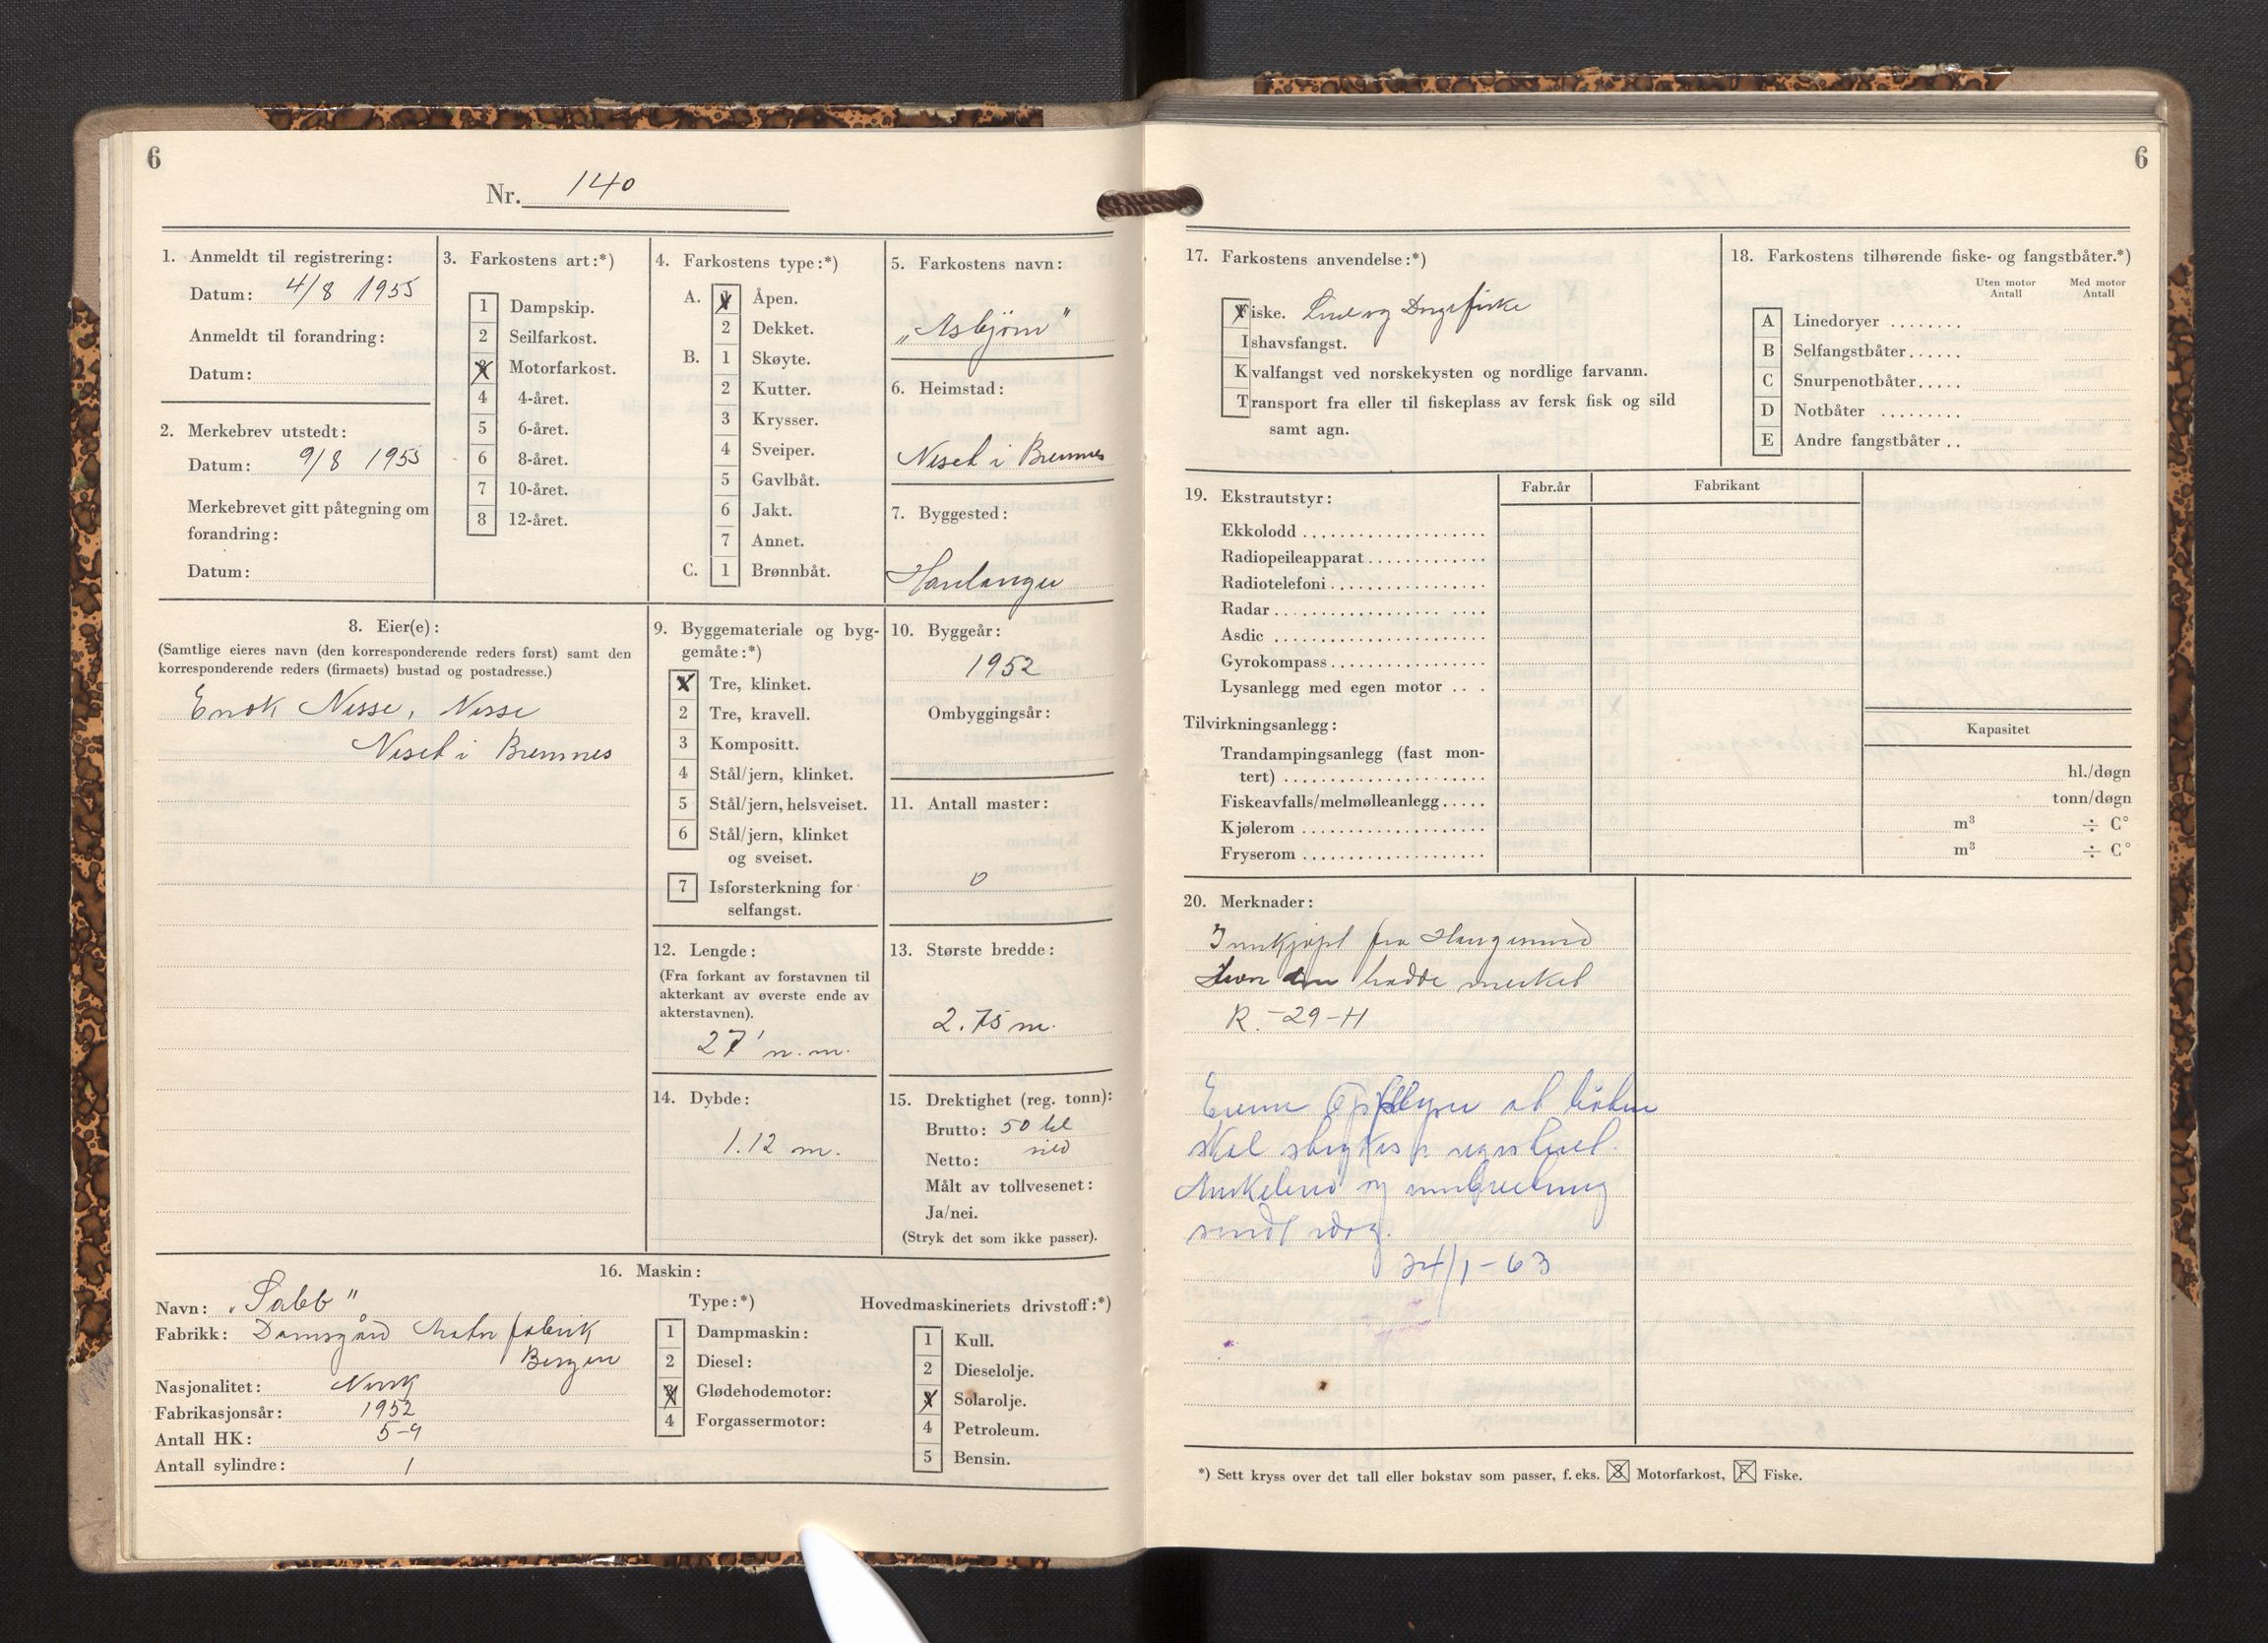 6
Nr. 140
1. Anmeldt til registrering:
Datum: 4/8 1955
Anmeldt til forandring:
Datum:
2. Merkebrev utstedt:
Datum: 9/8 1955
Merkebrevet gitt påtegning om
forandring:
Datum:
3. Farkostens art:*)
1 Dampskip.
2 Seilfarkost.
X Motorfarkost.
4 4-året.
5 6-året.
6 8-året.
7 10-året.
8 12-året.
4. Farkostens type:*)
A. X Åpen.
2 Dekket.
B. 1 Skøyte.
2 Kutter.
3 Krysser.
4 Sveiper.
5 Gavlbåt.
6 Jakt.
7 Annet.
C. 1 Brønnbåt.
5. Farkostens navn:
„Asbjørn"
6. Heimstad:
i Bremnes
7. Byggested:
Hardanger
8. Eier(e):
(Samtlige eieres navn (den korresponderende reders først) samt den
korresponderende reders (firmaets) bustad og postadresse.)
Enok Nesse, Nesse
i Bremnes
9. Byggemateriale og byg-
gemåte:*)
X Tre, klinket.
2 Tre, kravell.
3 Kompositt.
4 Stål/jern, klinket.
5 Stål/jern, helsveiset.
6 Stål/jern, klinket
og sveiset.
7 Isforsterkning for
selfangst.
10. Byggeår:
1952
Ombyggingsår:
11. Antall master:
0
12. Lengde:
(Fra forkant av forstavnen til
akterkant av øverste ende av
akterstavnen).
27' n.m.
13. Største bredde:
2.75 m.
14. Dybde:
1.12 m.
15. Drektighet (reg. tonn):
Brutto: 50 hl
Netto:
Målt av tollvesenet:
Ja/nei.
(Stryk det som ikke passer).
16. Maskin:
Navn: „Sabb"
Fabrikk: Damsgård Motorfabrik
Bergen
Nasjonalitet: Norsk
Fabrikasjonsår: 1952
Antall HK: 5-9
Antall sylindre: 1
Type:*)
1 Dampmaskin:
2 Diesel:
X Glødehodemotor:
4 Forgassermotor:
Hovedmaskineriets drivstoff:*)
1 Kull.
2 Dieselolje.
X Solarolje.
4 Petroleum.
5 Bensin.
6
17. Farkostens anvendelse:*)
Fiske. Line og Dorgefiske
Ishavsfangst.
Kvalfangst ved norskekysten og nordlige farvann.
Transport fra eller til fiskeplass av fersk fisk og sild
samt agn.
18. Farkostens tilhørende fiske- og fangstbåter.*)
Uten motor Antall Med motor Antall
A Linedoryer ........
B Selfangstbåter......
C Snurpenotbåter.....
D Notbåter .........
E Andre fangstbåter ..
19. Ekstrautstyr: Fabr.år Fabrikant
Ekkolodd
Radiopeileapparat
Radiotelefoni
Radar
Asdic
Gyrokompass
Lysanlegg med egen motor
Tilvirkningsanlegg: Kapasitet
Trandampingsanlegg (fast mon-
tert) hl./døgn
Fiskeavfalls/melmølleanlegg tonn/døgn
Kjølerom m³ ÷ C°
Fryserom m³ ÷ C°
20. Merknader:
Innkjøpt fra Haugesund
hvor den hadde merket
R.-29-H
Eieren Opplyser at båten
skal strykes i registeret.
og innberetning
sendt idag.
24/1-63
*) Sett kryss over det tall eller bokstav som passer, f. eks. 3 Motorfarkost, F Fiske.